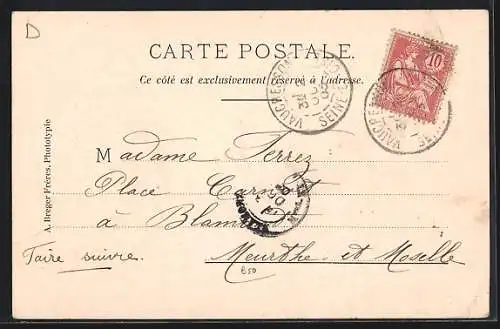 D
CARTE POSTALE.
Ce côté est exclusivement réservé à l'adresse.
10
VAUCRESSON
SEINE
VAUCRE
SEINE
A. Breger Frères, Phototypie
Madame Ferrez
Place Carnot
à Blamont
Faire suivre.
Meurthe et Moselle
B50